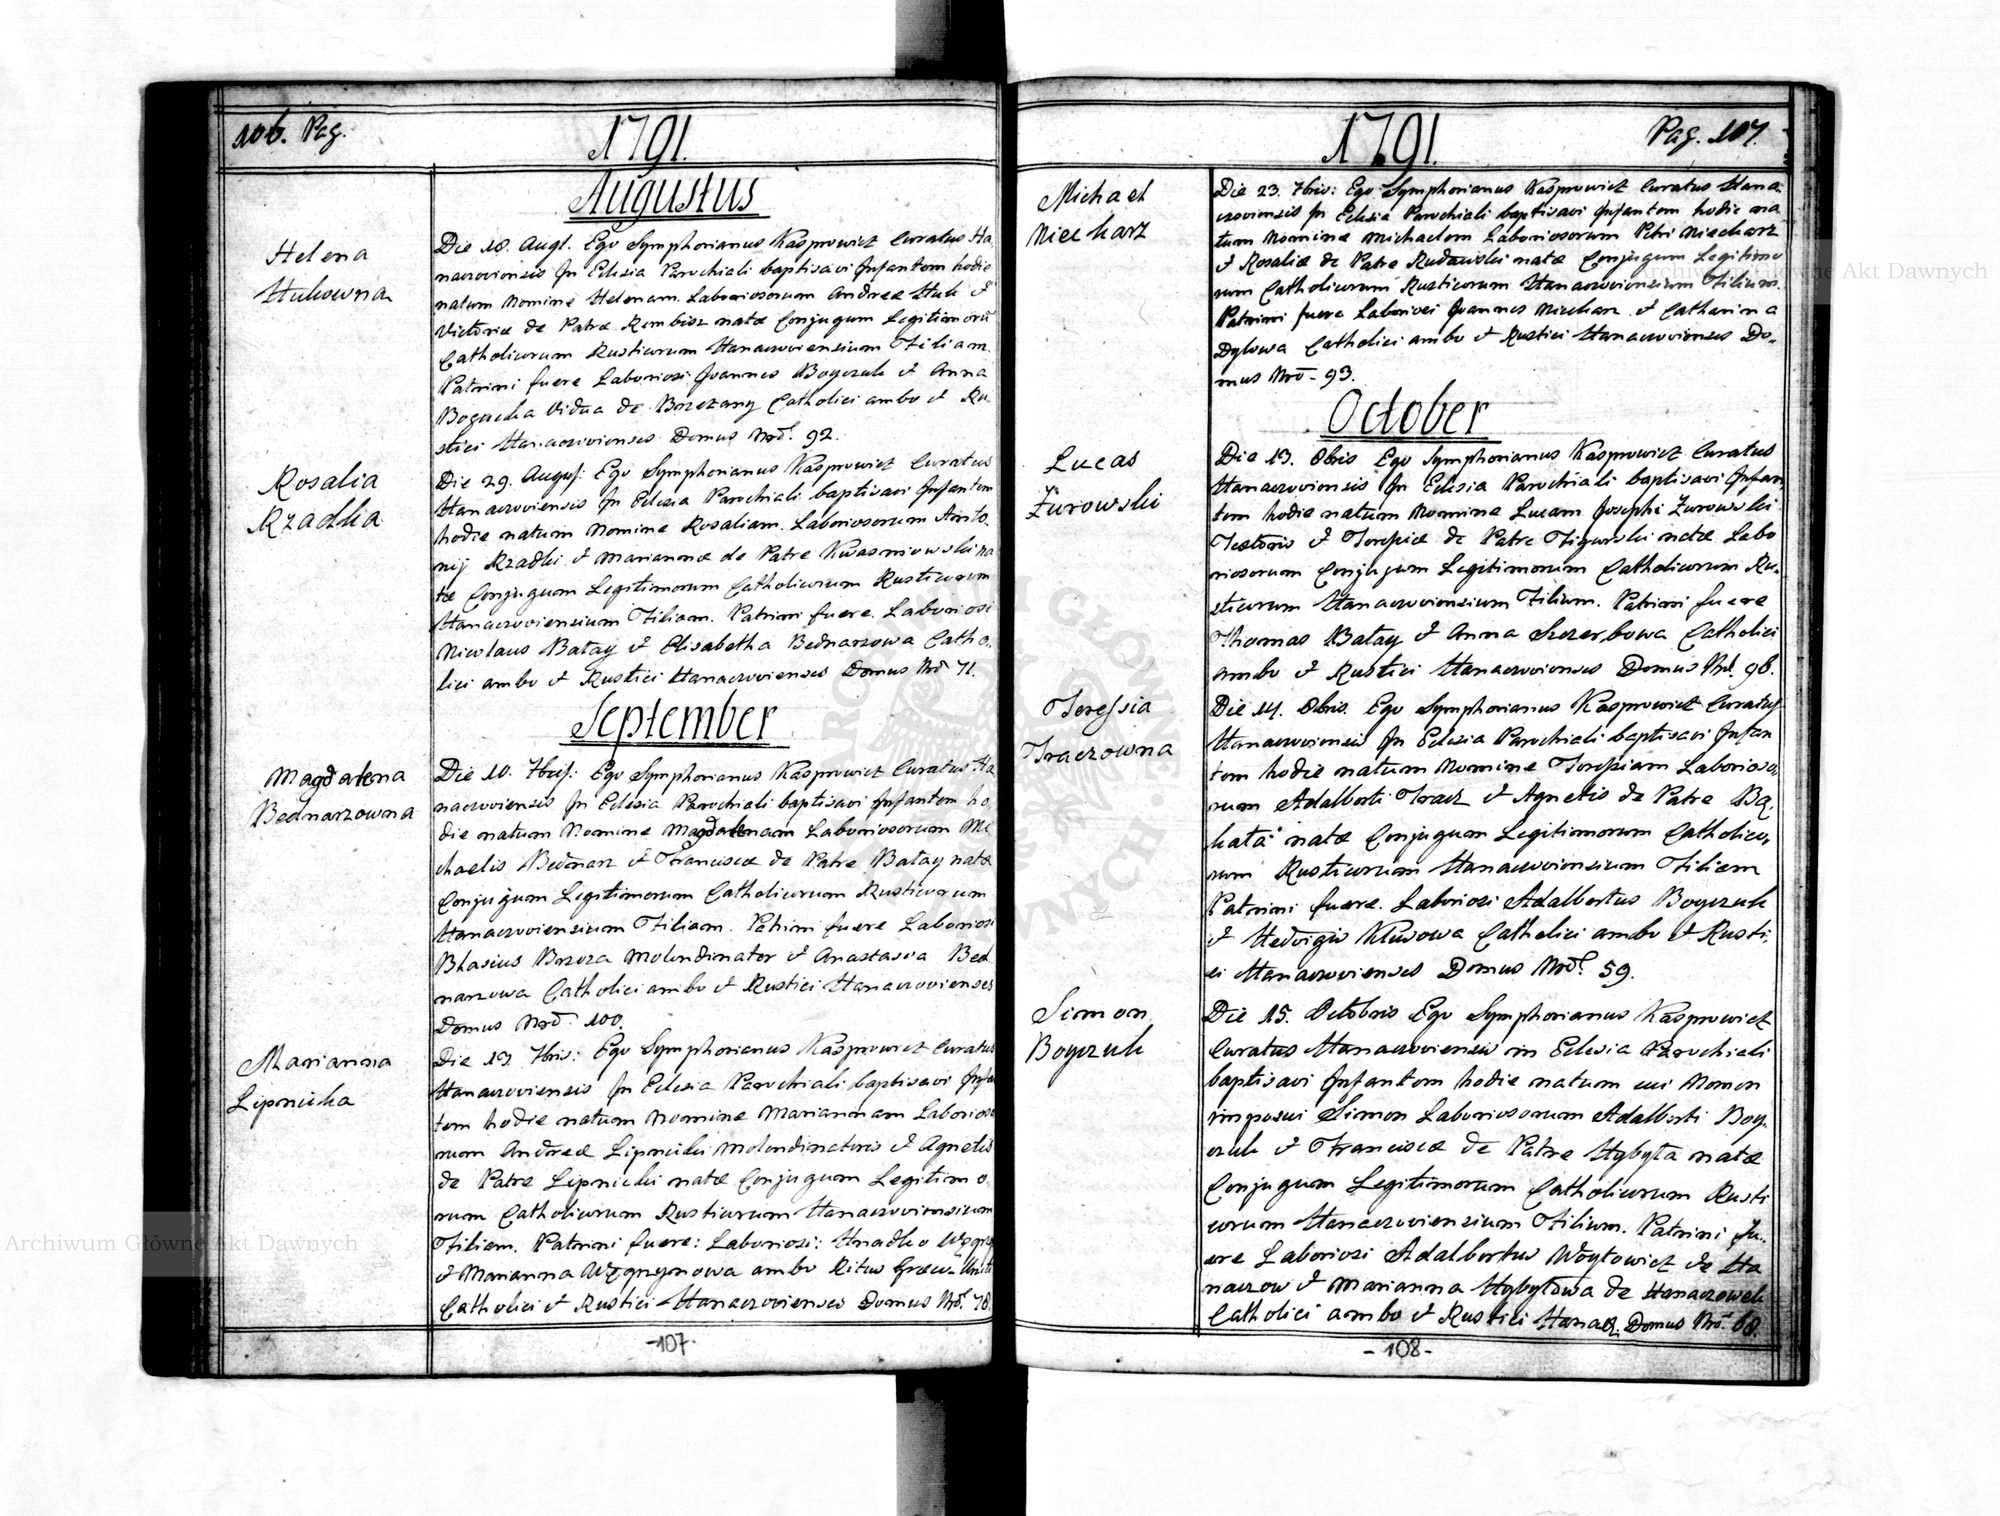 106. Pag.
1791.
Augustus
Helena
Hukowna
Die 10. Augt. Ego Symphorianus Kasprowicz Curatus Ha
naczoviensis In Eclesia Parochiali baptisavi Infantem hodie
natum Nomine Helenam. Laboriosorum Andreæ Huk et
Victoriæ de Patre Rembisz natæ Conjugum Legitimorū
Catholicorum Rusticorum Hanaczoviensium Filiam.
Patrini fuere Laboriosi Joannes Boyczuk et Anna
Bogucka Vidua de Brzezany Catholici ambo et Ru
stici Hanaczovienses Domus Nrō. 92.
Rosalia
Rządka
Die 29. August: Ego Symphorianus Kasprowicz Curatus
Hanaczoviensis In Eclesia Parochiali baptisavi Infantem
hodie natum Nomine Rosaliam. Laboriosorum Anto.
nij Rządki et Mariannæ de Patre Kwasniowski na
tæ Conjugum Legitimorum Catholicorum Rusticorum
Hanaczoviensium Filiam. Patrini fuere. Laboriosi
Nicolaus Batay et Elisabetha Bednarzowa Catho.
lici ambo et Rustici Hanaczovienses Domus Nrō 71.
September
Magdalena
Bednarzowna
Die 10. 7bris: Ego Symphorianus Kasprowicz Curatus Ha
naczoviensis In Eclesia Parochiali baptisavi Infantem ho.
die natum Nomine Magdalenam Laboriosorum Mi
chaelis Bednarz et Franciscæ de Patre Batay natæ
Conjugum Legitimorum Catholicorum Rusticorum
Hanaczoviensium Filiam. Patrini fuere Laboriosi
Blasius Brzoza Molendinator et Anastasia Bed
narzowa Catholici ambo et Rustici Hanaczovienses
Domus Nrō. 100.
Marianna
Lipnicka
Die 13. 7bris: Ego Symphorianus Kasprowicz Curatus
Hanaczoviensis In Eclesia Parochiali baptisavi Infan
tem hodie natum Nomine Mariannam Laborioso
rum Andreæ Lipnicki Molendinatoris et Agnetis
de Patre Lipnicki natæ Conjugum Legitimo.
rum Catholicorum Rusticorum Hanaczoviensium
Filiam. Patrini fuere: Laboriosi: Hnadko
et Marianna Węgrzynowa ambo Ritus Græci
Catholici et Rustici Hanaczovienses Domus Nrō. 78.
-107-
1791.
Pag. 107.
Michael
Niecharz
Die 23. 7bris: Ego Symphorianus Kasprowicz Curatus Hana.
czoviensis In Eclesia Parochiali baptisavi Infantem hodie na
tum Nomine Michaelem Laboriosorum Petri Niecharz
et Rosaliæ de Patre Rudawski natæ Conjugum Legitimo
rum Catholicorum Rusticorum Hanaczoviensium Filium.
Patrini fuere Laboriosi Joannes Niecharz et Catharina
Dylowa Catholici ambo et Rustici Hanaczovienses Do.
mus Nrō - 93.
October
Lucas
Żurowski
Die 13. 8bris Ego Symphorianus Kasprowicz Curatus
Hanaczoviensis In Eclesia Parochiali baptisavi Infan
tem hodie natum Nomine Lucam Josephi Żurowski
Textoris et Teresiæ de Patre Figurski natæ Labo
riosorum Conjugum Legitimorum Catholicorum Ru.
sticorum Hanaczoviensium Filium. Patrini fuere
Thomas Batay et Anna Szczerbowa Catholici
ambo et Rustici Hanaczovienses Domus Nrō. 96.
Teressia
Traczowna
Die 14. 8bris. Ego Symphorianus Kasprowicz Curatus
Hanaczoviensis In Eclesia Parochiali baptisavi Infan
tem hodie natum Nomine Teressiam Laborioso.
rum Adalberti Tracz et Agnetis de Patre Bą.
kata natæ Conjugum Legitimorum Catholico.
rum Rusticorum Hanaczoviensium Filiam
Patrini fuere. Laboriosi Adalbertus Boyczuk
et Hedvigis Klusowa Catholici ambo et Rusti.
ci Hanaczovienses Domus Nrō. 59.
Simon
Boyczuk
Die 15. Octobris Ego Symphorianus Kasprowicz
Curatus Hanaczoviensis in Eclesia Parochiali
baptisavi Infantem hodie natum cui Nomen
imposui Simon Laboriosorum Adalberti Boy.
czuk et Franciscæ de Patre Hybyła natæ
Conjugum Legitimorum Catholicorum Rusti
corum Hanaczoviensium Filium. Patrini fu.
ere Laboriosi Adalbertus Woytowicz de Ha
naczow et Marianna Hybyłowa de Hanaczowek
Catholici ambo et Rustici Hanacz. Domus Nrō. 68.
-108-
Archiwum Główne Akt Dawnych
Archiwum Główne Akt Dawnych